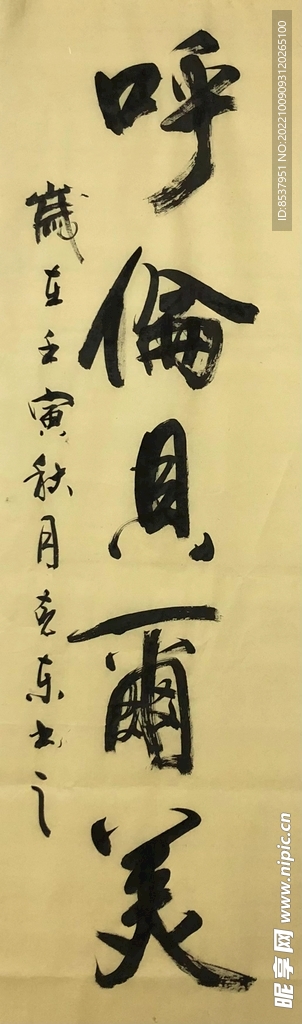 呼倫貝爾美
歲在壬寅秋月克東書之
ID:8537951 NO:20221009093120265100
昵享网 www.nipic.cn